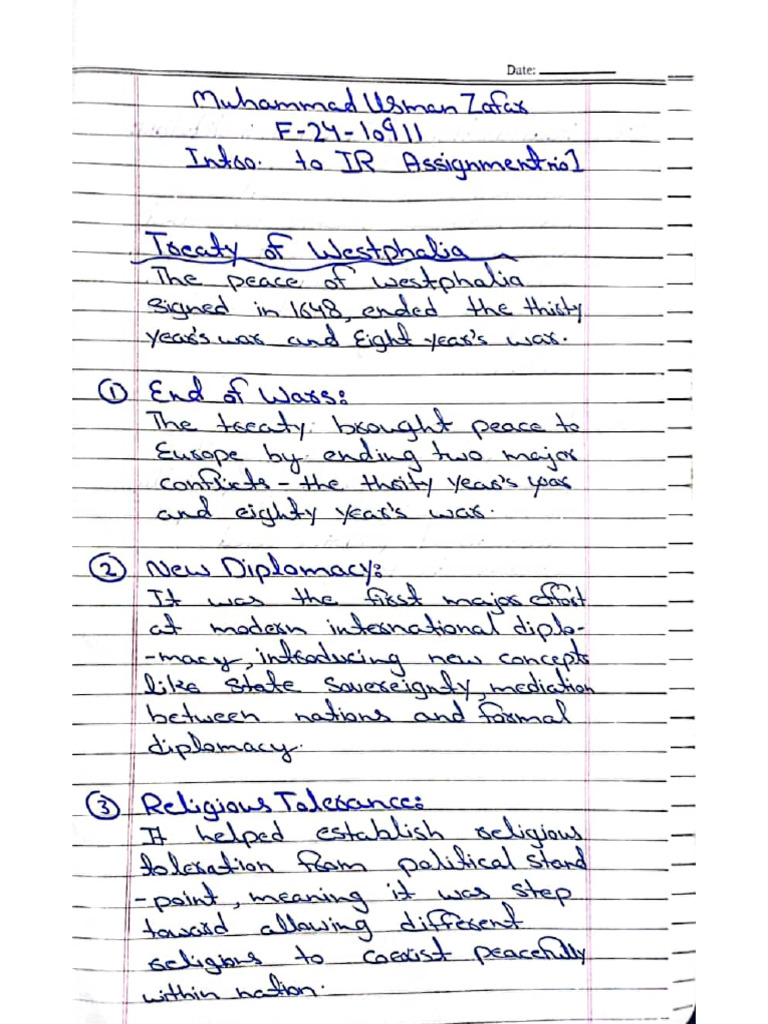 Date:
Muhammad Usman Zafar
F-24-10911
Intro. to IR Assignment no1
Treaty of Westphalia
The peace of westphalia
signed in 1648, ended the thirty
year's war and Eight year's war.
① End of Wars:
The treaty brought peace to
Europe by ending two major
conflicts - the thirity year's war
and eighty year's war.
② New Diplomacy:
It was the first major effort
at modern international diplo-
-macy, introducing new concepts
like State Sovereignty, mediation
between nations and formal
diplomacy.
③ Religious Tolerance:
It helped establish religious
toleration from political stand
-point, meaning it was step
toward allowing different
religions to coexist peacefully
within nation.